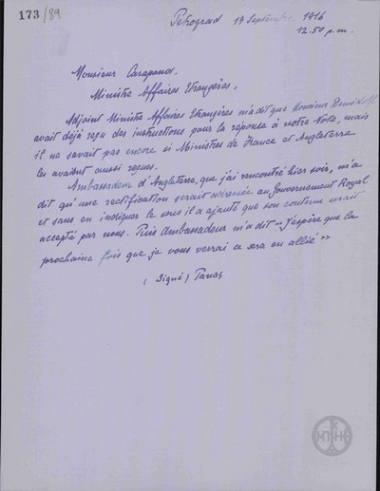 173/89
Petrograd 17 Septembre 1916
12.50 p.m.
Monsieur Carapanos,
Ministre Affaires Etrangères.
Adjoint Ministre Affaires Etrangères m'a dit que Monsieur Demidoff
avait déjà reçu des instructions pour la réponse à notre Note, mais
il ne savait pas encore si Ministres de France et Angleterre
les avaient aussi reçues.
Ambassadeur d'Angleterre, que j'ai rencontré hier soir, m'a
dit qu'une rectification serait adressée au Gouvernement Royal
et sans en indiquer le sens il a ajouté que son contenu serait
accepté par nous. Puis Ambassadeur m'a dit "J'espère que la
prochaine fois que je vous verrai ce sera en allié"
(Signé) Panas